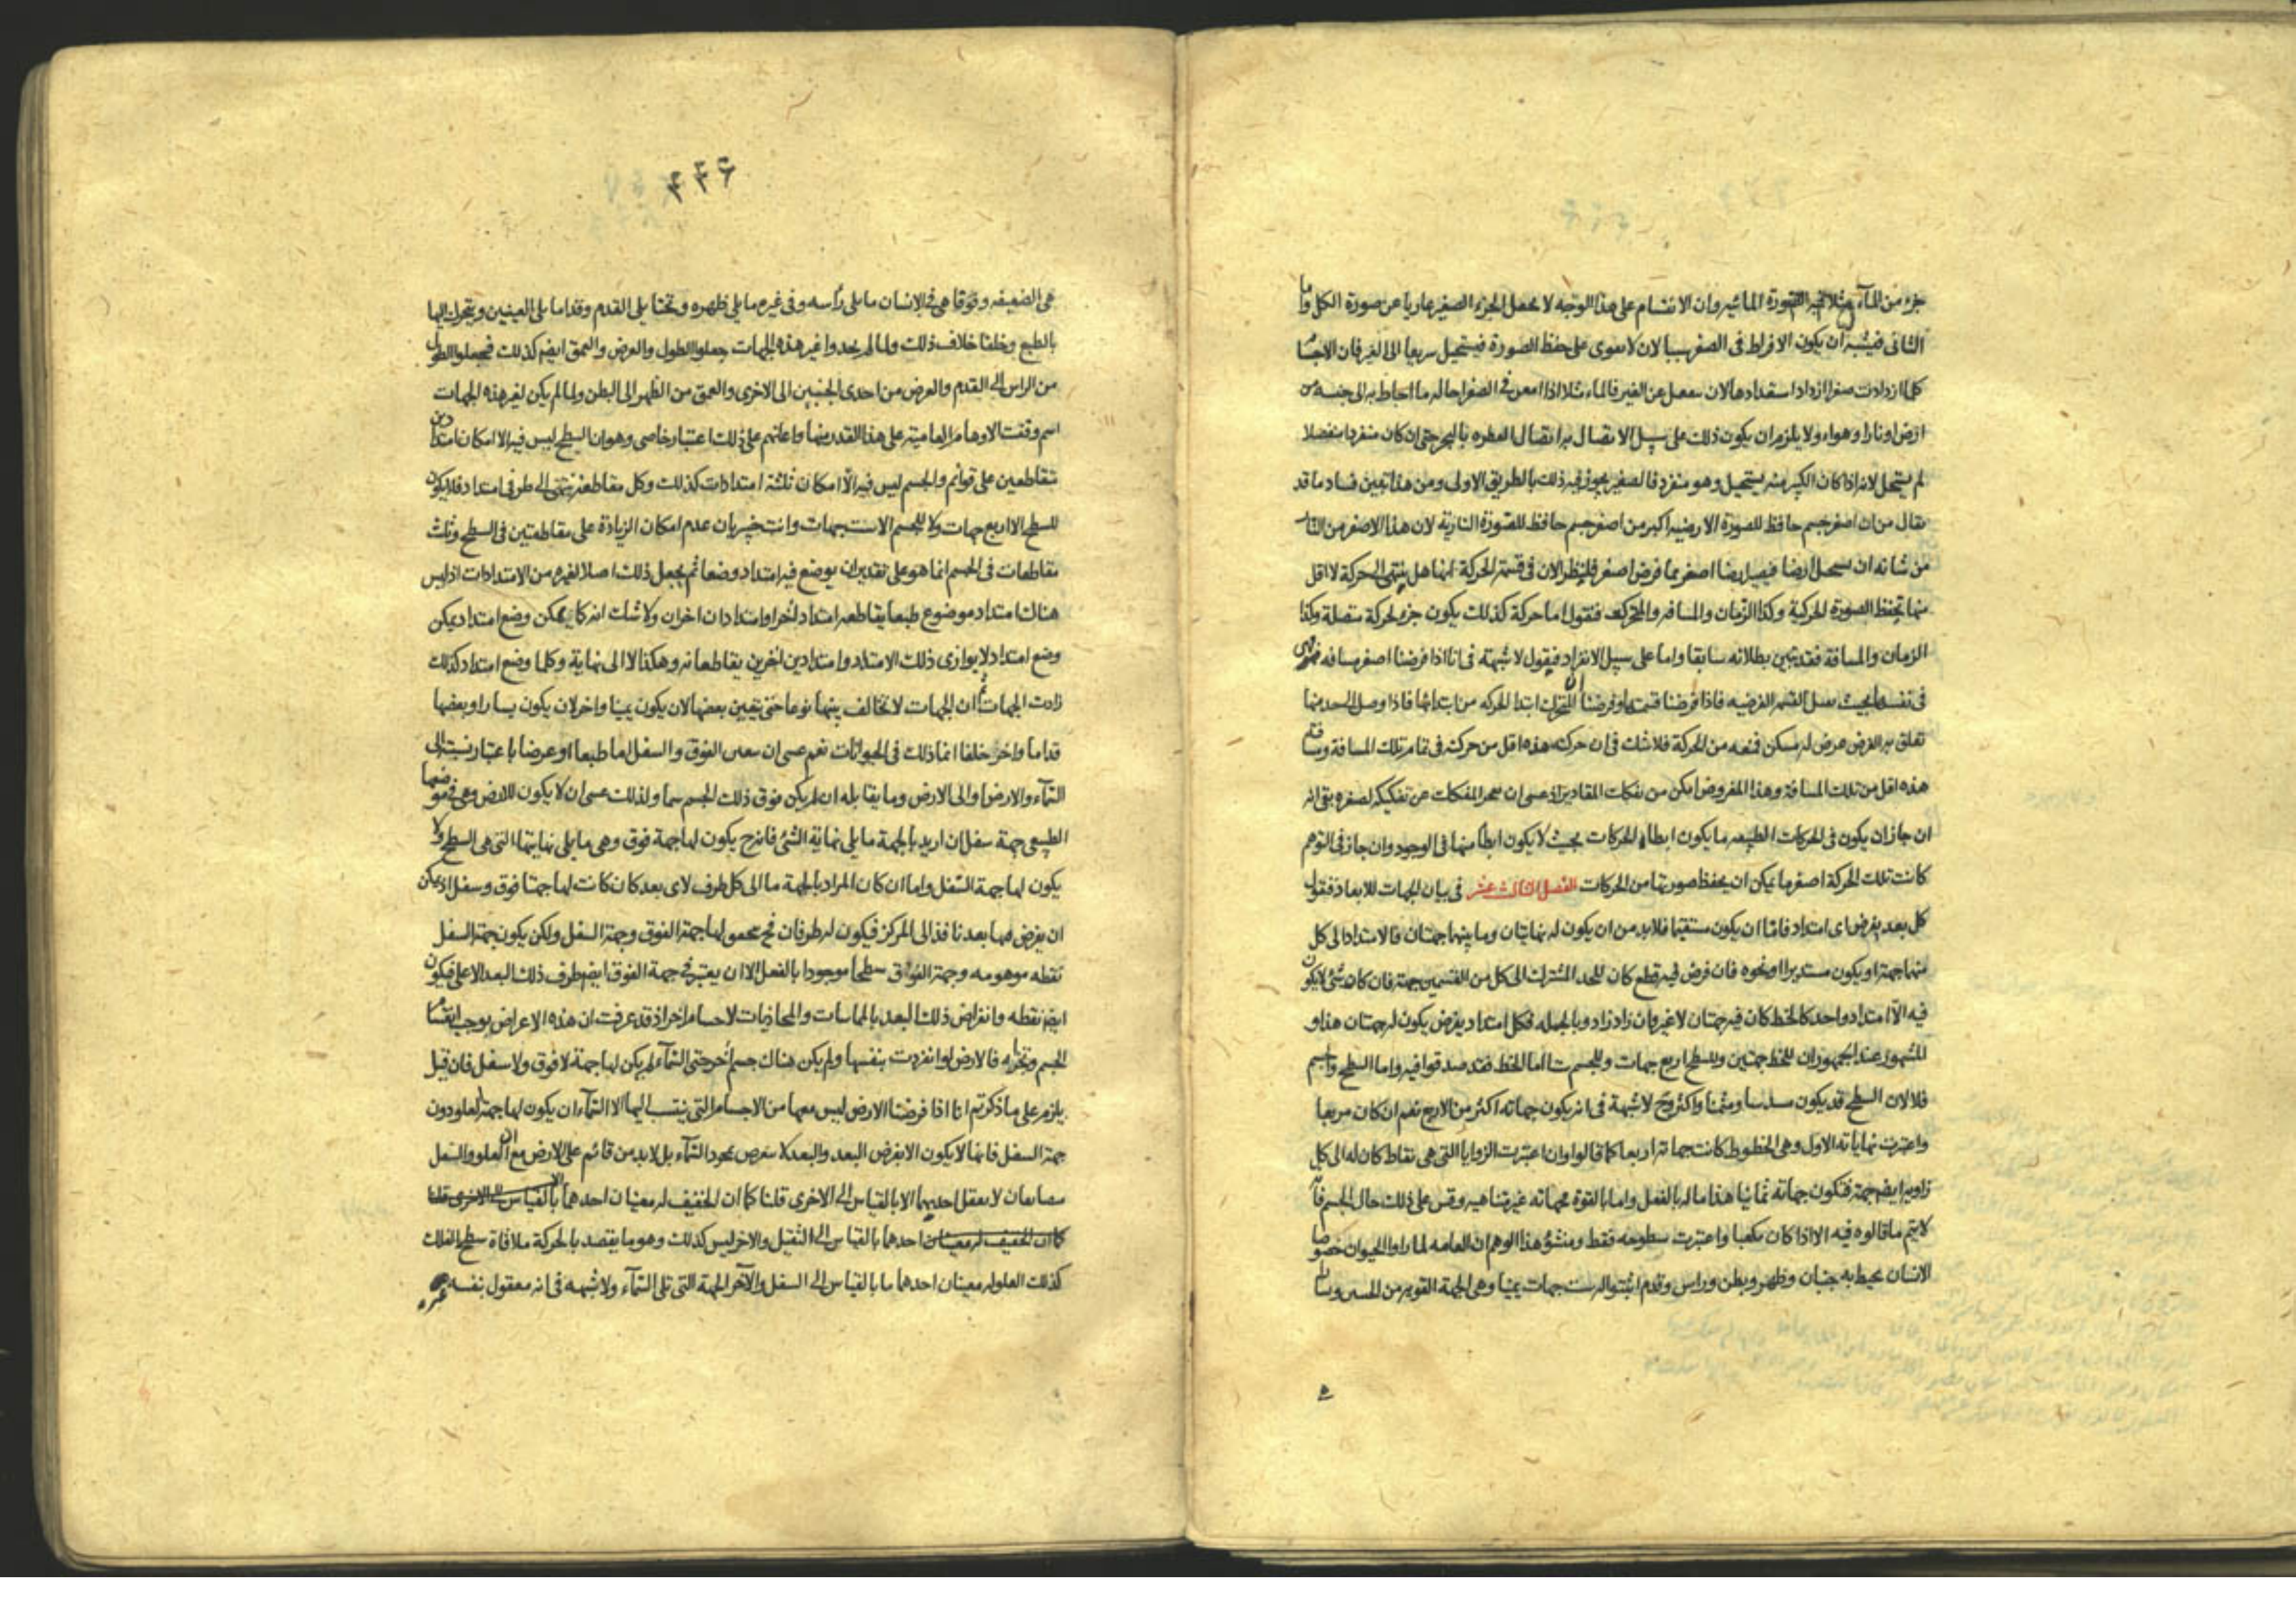 جزء من المآء مثلا فيه الصورة المائية وان الانقسام على هذا الوجه لا يجعل الجزء الصغير عاريا عن صورة الكل واما
الثانى فيشبه ان يكون الافراط فى الصغر سببا لان لا يقوى على حفظ الصورة فيستحيل سريعا الى الغير فان الاجسام
كلما ازدادت صغرا ازداد استعدادها لان ينفعل عن الغير فالماء مثلا اذا امعن فى الصغر احاله ما احاط به الى جنسه من
ارض او نار او هواء ولا يلزم ان يكون ذلك على سبيل الاتصال به اتصال القطره بالبحر حتى ان كان منفردا منفصلا
لم يستحل لانه اذا كان الكبير منه يستحيل وهو منفرد فالصغير يجوز فيه ذلك بالطريق الاولى ومن هذا تبين فساد ما قد
يقال من ان اصغر جسم حافظ للصورة الارضيه اكبر من اصغر جسم حافظ للصورة النارية لان هذا الاصغر من النار
من شانه ان يستحيل ارضا فيصير ارضا اصغر مما فرض اصغر فلينظر الان فى قسمة الحركة انها هل ينتهى الحركة لا اقل
منها تحفظ الصورة الحركية وكذا الزمان والمسافه والمتحرك فنقول اما حركة كذلك يكون جزء لحركة متصلة وكذا
الزمان والمسافة فقد تبين بطلانه سابقا واما على سبيل الانفراد فيقول لا شبهة فى انا اذا فرضنا اصغر مسافه
فى نفسها بحيث يقبل القسمه الفرضيه فاذا فرضنا قسمتها وفرضنا ان المتحرك ابتدا الحركه من ابتدائها فاذا وصل الى حد منها
تعلق به الفرض عرض له مسكن فمنعه من الحركة فلا شك فى ان حركته هذه اقل من حركته فى تمام تلك المسافة ومسافة
هذه اقل من تلك المسافة وهذا المفروض امكن من تفكك المقادير اذ عسى ان يعجز المفككات عن تفكيكه لصغره بقى انه
ان جاز ان يكون فى الحركات الطبيعيه ما يكون ابطأ الحركات بحيث لا يكون ابطأ منها فى الوجود وان جاز فى التوهم
كانت تلك الحركة اصغر ما يمكن ان يحفظ صورتها من الحركات الفصل الثالث عشر فى بيان الجهات للابعاد فنقول
كل بعد يفرض اى امتداد فاما ان يكون مستقيما فلابد من ان يكون له نهايتان وما بينهما جهتان فالامتداد الى كل
منهما جهة او يكون مستديرا او نحوه فان فرض فيه قطع كان للحد المشترك الى كل من القسمين جهة فان كان شئ لا يكون
فيه الا امتداد واحد كالخط كان فيه جهتان لا غير وان زاد زاد وبالجمله فكل امتداد يفرض يكون له جهتان هذا و
المشهور عند الجمهور ان للخط جهتين وللسطح اربع جهات وللجسم ستا اما الخط فقد صدقوا فيه واما السطح والجسم
فلا لان السطح قد يكون مسدسا ومثمنا واكثر وح لا شبهة فى انه يكون جهاته اكثر من الاربع نعم ان كان مربعا
واعتبرت نهاياته الاول وهى الخطوط كانت جهاته اربعا كما قالوا وان اعتبرت الزوايا التى هى نقاط كان له الى كل
زاويه ايضا جهة فتكون جهاته ثمانيا هذا ما له بالفعل واما بالقوة فجهاته غير متناهيه وقس على ذلك حال الجسم فانه
لا يتم ما قالوه فيه الا اذا كان مكعبا واعتبرت سطوحه فقط ومنشؤ هذا الوهم ان العامه لما راوا الحيوان خصوصا
الانسان يحيط به جنبان وظهر وبطن وراس وقدم اثبتوا له ست جهات يمينا وهى الجهة القويه من الجنبين ويسارا
۴۴۶
هى الضعيفه وفوقا هى فى الانسان ما يلى رأسه وفى غيره ما يلى ظهره وتحتا يلى القدم وقداما يلى العينين ويتحرك اليها
بالطبع وخلفا خلاف ذلك ولما لم يجدوا غير هذه الجهات جعلوا الطول والعرض والعمق ايضا كذلك فجعلوا الطول
من الراس الى القدم والعرض من احدى الجنبين الى الاخرى والعمق من الظهر الى البطن ولما لم يكن لغير هذه الجهات
اسم وقفت الاوهام العامية على هذا القدر منها واعانهم على ذلك اعتبار خاصى وهو ان السطح ليس فيه الا امكان امتدادين
متقاطعين على قوائم والجسم ليس فيه الا امكان ثلثة امتدادات كذلك وكل مقاطعة ينتهى الى طرفى امتداد فلا يكون
للسطح الا اربع جهات ولا للجسم الا ست جهات وانت خبير بان عدم امكان الزيادة على مقاطعتين فى السطح وثلث
مقاطعات فى الجسم انما هو على تقدير ان يوضع فيه امتداد وضعا ثم يجعل ذلك اصلا لغيره من الامتدادات اذ ليس
هناك امتداد موضوع طبعا يقاطعه امتداد اخر او امتدادان اخران ولا شك انه كما يمكن وضع امتداد يمكن
وضع امتداد لا يوازى ذلك الامتداد وامتدادين اخرين يقاطعانه وهكذا لا الى نهاية وكلما وضع امتداد كذلك
زادت الجهات ثم ان الجهات لا تخالف بينها نوعا حتى يتعين بعضها لان يكون يمينا واخر لان يكون يسارا وبعضها
قداما واخر خلفا انما ذلك فى الحيوانات نعم عسى ان يتعين الفوق والسفل اما طبعا او عرضا باعتبار نسبته الى
السمآء والارض او الى الارض وما يقابله ان لم يكن فوق ذلك الجسم سما ولذلك عسى ان لا يكون للارض وهى فى موضعها
الطبيعى جهة سفل ان اريد بالجهة ما يلى نهاية الشئ فانه ح يكون لها جهة فوق وهى ما يلى نهايتها التى هى السطح ولا
يكون لها جهة السفل واما ان كان المراد بالجهة ما الى كل طرف لاى بعد كان كانت لها جهتا فوق وسفل اذ يمكن
ان يفرض فيها بعد نافذ الى المركز فيكون له طرفان فح لها جهة الفوق وجهة السفل ولكن يكون جهة السفل
نقطه موهومه وجهة الفوق سطحا موجودا بالفعل الا ان يعتبر فى جهة الفوق ايضا طرف ذلك البعد الاعلى فيكون
ايضا نقطه وانفراض ذلك البعد بالمماسات والمحاذيات لاجسام اخر اذ قد عرفت ان هذه الاعراض يوجب انقسام
الجسم وتجزئه فالارض لو انفردت بنفسها ولم يكن هناك جسم اخر حتى السمآء لم يكن لها جهة لا فوق ولا سفل فان قيل
يلزم على ما ذكرتم انا اذا فرضنا الارض ليس معها من الاجسام التى ينتسب اليها الا السمآء ان يكون لها جهة العلو دون
جهة السفل فانها لا يكون الا بفرض البعد والبعد لا يفرض بمجرد السمآء بل لابد من قائم على الارض مع ان العلو والسفل
متضايفان لا يعقل احديهما الا بالقياس الى الاخرى قلنا كما ان الخفيف له معنيان احدهما بالقياس الى الاخرى قلنا
كما ان الخفيف له معنيان احدهما بالقياس الى الثقيل والاخر ليس كذلك وهو ما يقصد بالحركة ملاقاة سطح الفلك
كذلك العلو له معنيان احدهما ما بالقياس الى السفل والآخر الجهة التى تلى السمآء ولا شبهه فى انه معقول بنفسه